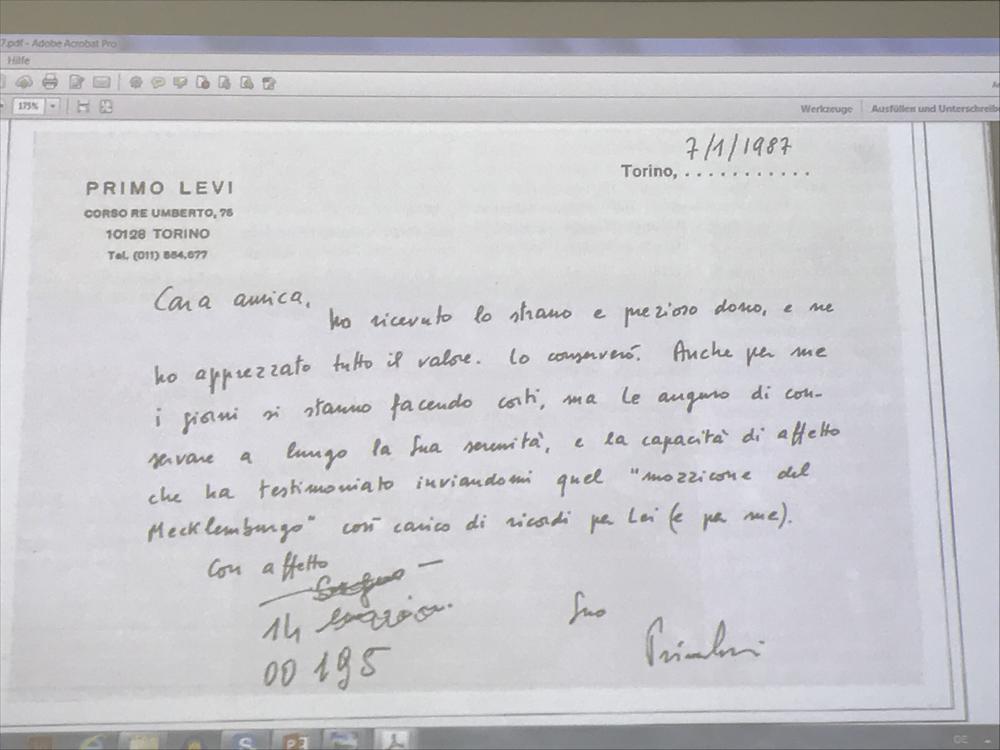 7.pdf - Adobe Acrobat Pro
Hilfe
175%
Werkzeuge
Ausfüllen und Unterschreib
7/1/1987
Torino, . . . . . . . . . . .
PRIMO LEVI
CORSO RE UMBERTO, 75
10128 TORINO
Tel. (011) 584.677
Cara amica,
ho ricevuto lo strano e prezioso dono, e ne
ho apprezzato tutto il valore. Lo conserverò. Anche per me
i giorni si stanno facendo corti, ma Le auguro di con-
servare a lungo la Sua serenità, e la capacità di affetto
che ha testimoniato inviandomi quel "mozzicone del
Mecklemburgo" così carico di ricordi per Lei (e per me).
Con affetto
14
Suo
00195
Primo Levi
GE